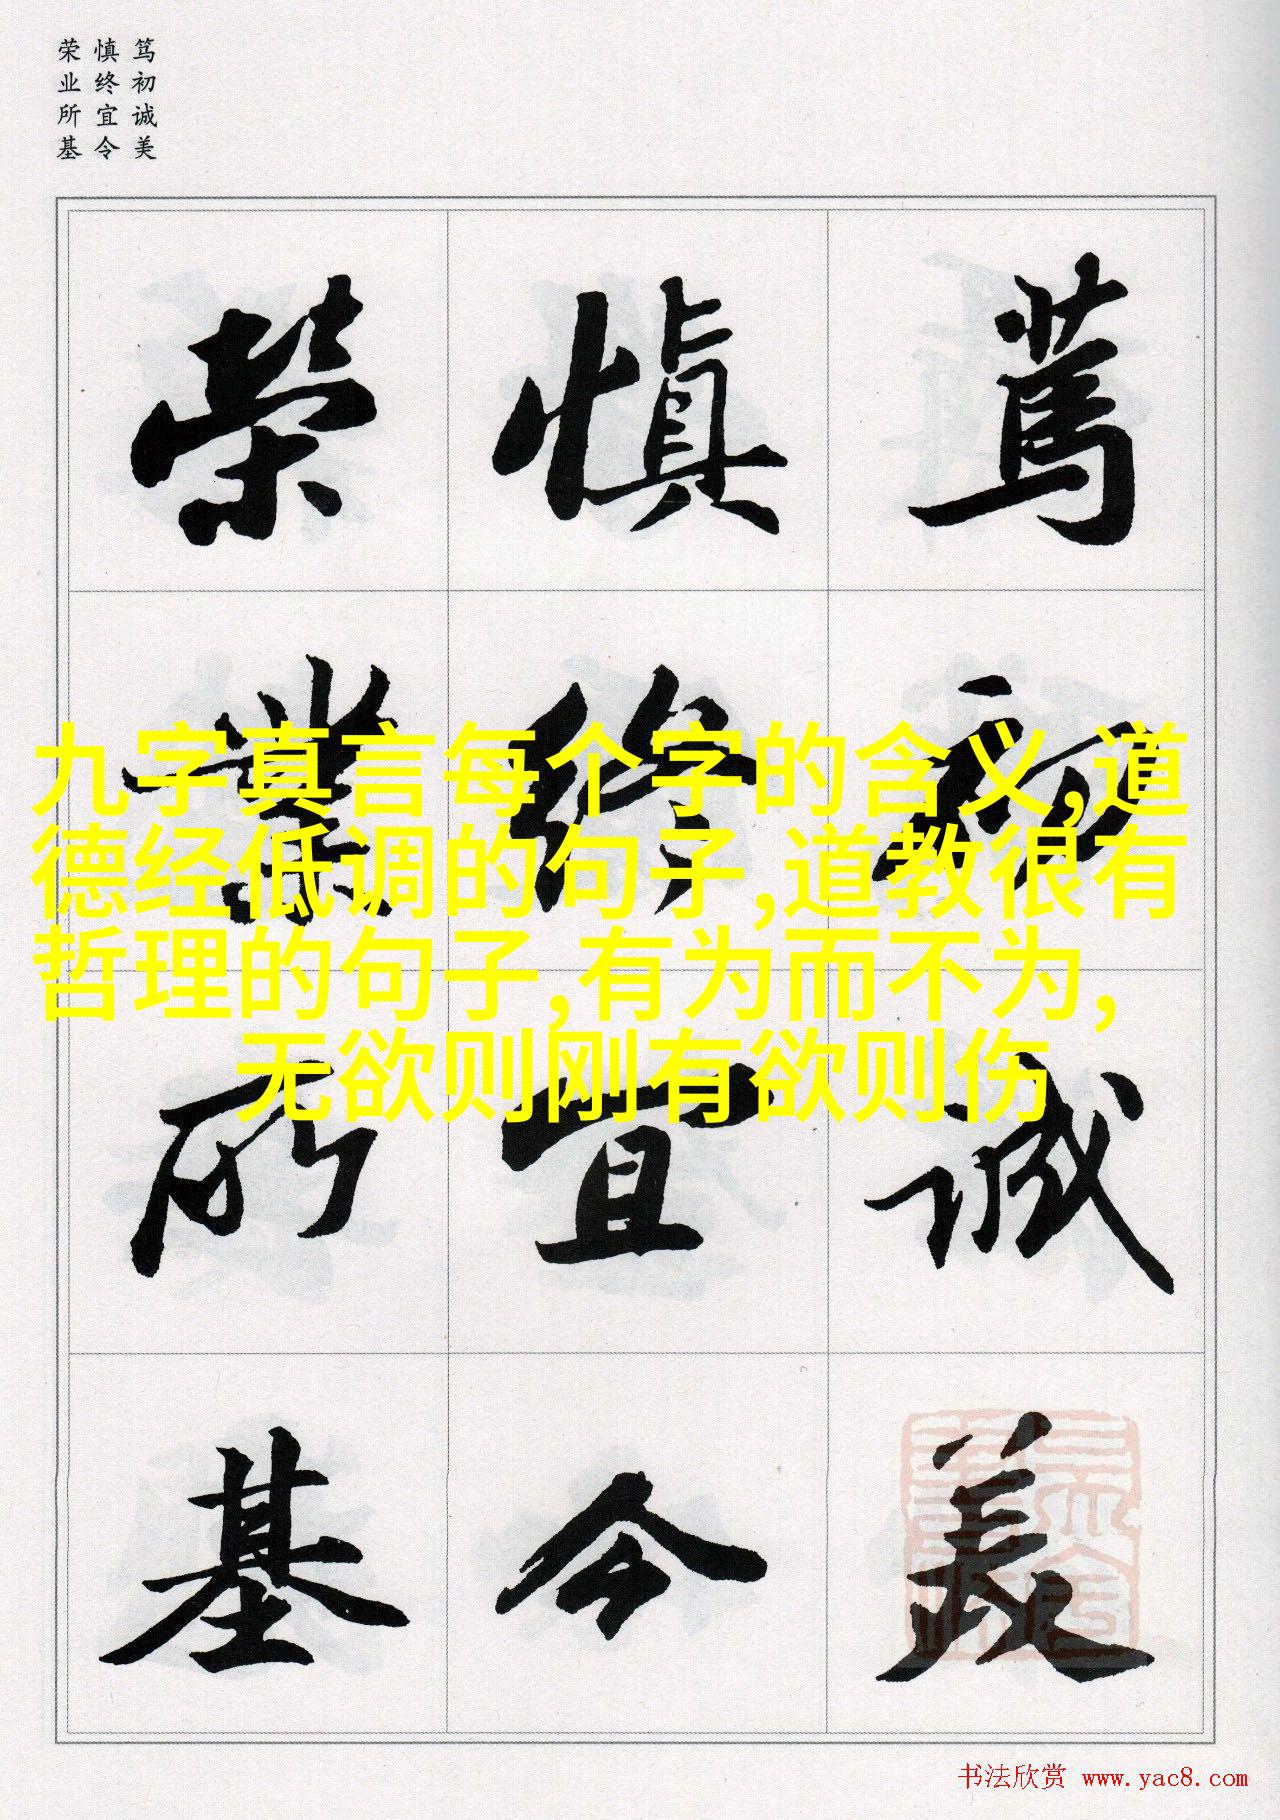 笃初诚美
慎终宜令
荣业所基
篤初誠美
慎終宜令
榮業所基
九字真言每个字的含义,道
德经低调的句子,道教很有
哲理的句子,有为而不为,
无欲则刚有欲则伤
书法欣赏 www.yac8.com